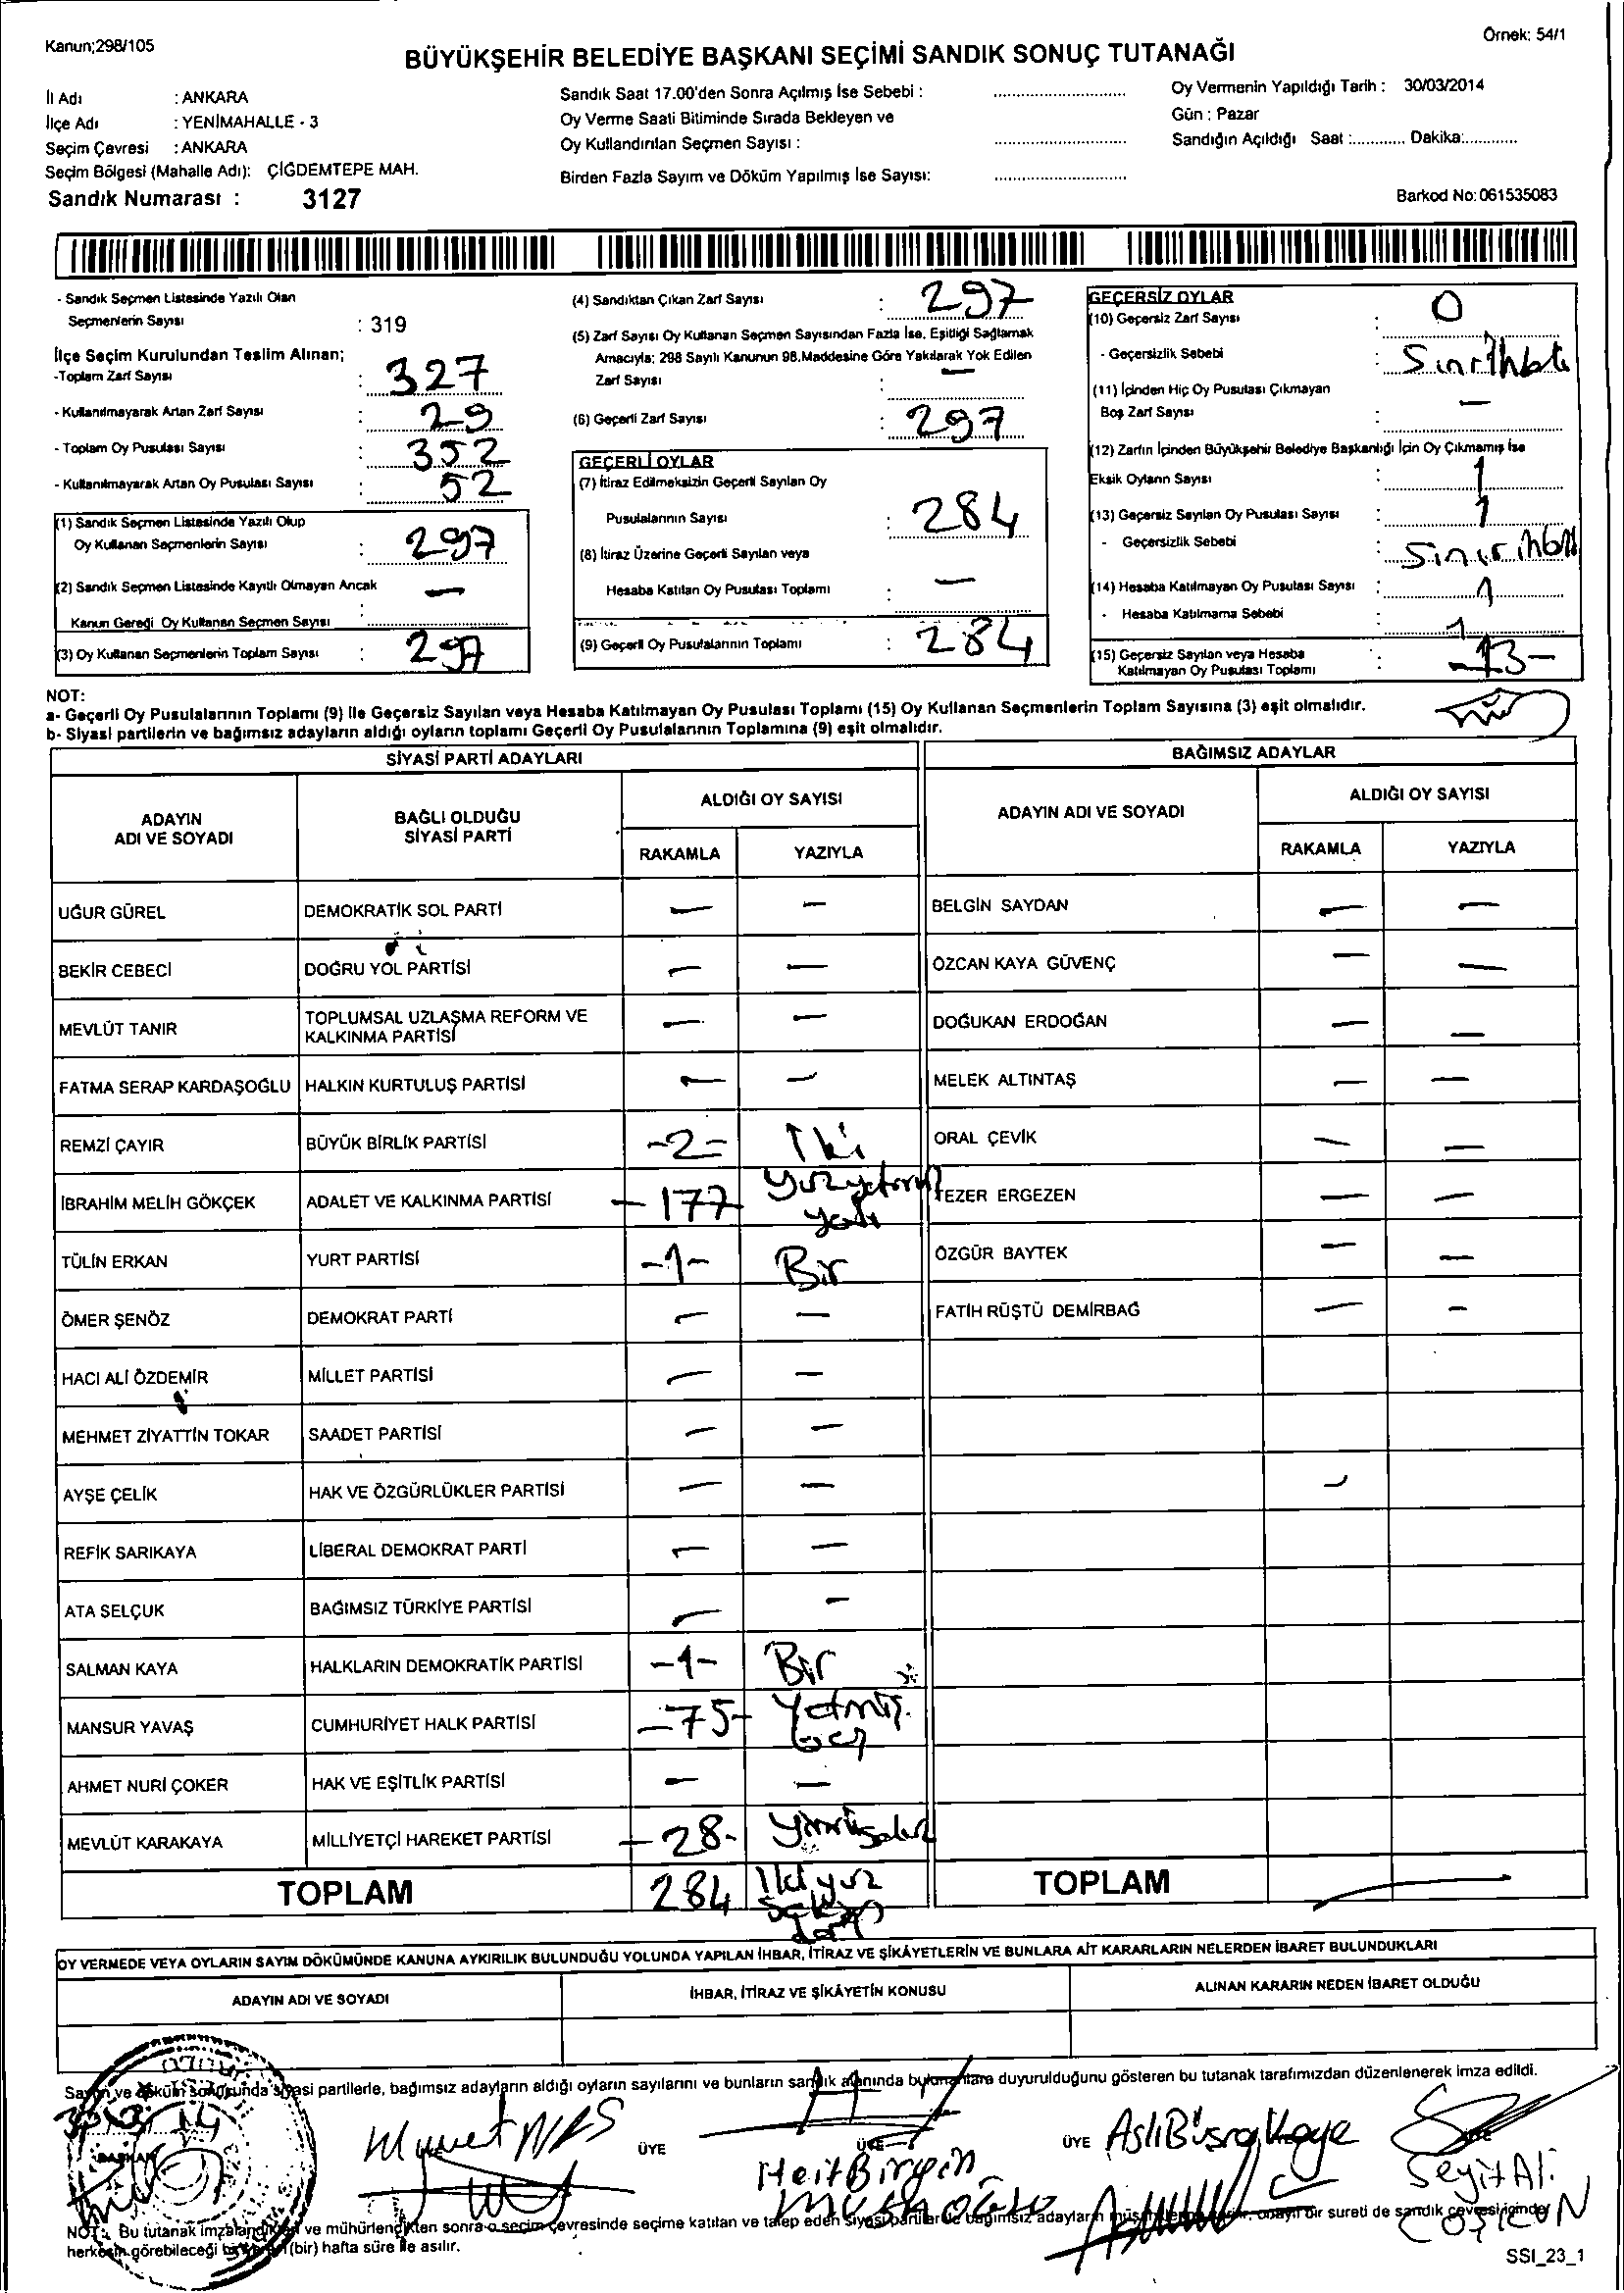 Kanun;298/105
Örnek: 54/1
BÜYÜKŞEHİR BELEDİYE BAŞKANI SEÇİMİ SANDIK SONUÇ TUTANAĞI
İl Adı : ANKARA
İlçe Adı : YENİMAHALLE - 3
Seçim Çevresi : ANKARA
Seçim Bölgesi (Mahalle Adı): ÇİĞDEMTEPE MAH.
Sandık Numarası : 3127
Sandık Saat 17.00'den Sonra Açılmış İse Sebebi :
Oy Verme Saati Bitiminde Sırada Bekleyen ve
Oy Kullandırılan Seçmen Sayısı :
Birden Fazla Sayım ve Döküm Yapılmış İse Sayısı:
Oy Vermenin Yapıldığı Tarih : 30/03/2014
Gün : Pazar
Sandığın Açıldığı Saat :............ Dakika:............
Barkod No:061535083
- Sandık Seçmen Listesinde Yazılı Olan
Seçmenlerin Sayısı : 319
İlçe Seçim Kurulundan Teslim Alınan;
-Toplam Zarf Sayısı : 327
- Kullanılmayarak Artan Zarf Sayısı : 29
- Toplam Oy Pusulası Sayısı : 352
- Kullanılmayarak Artan Oy Pusulası Sayısı : 52
(1) Sandık Seçmen Listesinde Yazılı Olup
Oy Kullanan Seçmenlerin Sayısı : 297
(2) Sandık Seçmen Listesinde Kayıtlı Olmayan Ancak
Kanun Gereği Oy Kullanan Seçmen Sayısı : —
(3) Oy Kullanan Seçmenlerin Toplam Sayısı : 297
(4) Sandıktan Çıkan Zarf Sayısı : 297
(5) Zarf Sayısı Oy Kullanan Seçmen Sayısından Fazla İse, Eşitliği Sağlamak
Amacıyla; 298 Sayılı Kanunun 98.Maddesine Göre Yakılarak Yok Edilen
Zarf Sayısı : —
(6) Geçerli Zarf Sayısı : 297
GEÇERLİ OYLAR
(7) İtiraz Edilmeksizin Geçerli Sayılan Oy
Pusulalarının Sayısı : 284
(8) İtiraz Üzerine Geçerli Sayılan veya
Hesaba Katılan Oy Pusulası Toplamı : —
(9) Geçerli Oy Pusulalarının Toplamı : 284
GEÇERSİZ OYLAR
(10) Geçersiz Zarf Sayısı : 0
- Geçersizlik Sebebi :
(11) İçinden Hiç Oy Pusulası Çıkmayan
Boş Zarf Sayısı : —
(12) Zarfın İçinden Büyükşehir Belediye Başkanlığı İçin Oy Çıkmamış İse
Eksik Oyların Sayısı : 1
(13) Geçersiz Sayılan Oy Pusulası Sayısı : 1
- Geçersizlik Sebebi :
(14) Hesaba Katılmayan Oy Pusulası Sayısı : 1
- Hesaba Katılmama Sebebi : 1
(15) Geçersiz Sayılan veya Hesaba
Katılmayan Oy Pusulası Toplamı : -13-
NOT:
a- Geçerli Oy Pusulalarının Toplamı (9) ile Geçersiz Sayılan veya Hesaba Katılmayan Oy Pusulası Toplamı (15) Oy Kullanan Seçmenlerin Toplam Sayısına (3) eşit olmalıdır.
b- Siyasi partilerin ve bağımsız adayların aldığı oyların toplamı Geçerli Oy Pusulalarının Toplamına (9) eşit olmalıdır.
SİYASİ PARTİ ADAYLARI
ADAYIN ADI VE SOYADI
BAĞLI OLDUĞU SİYASİ PARTİ
ALDIĞI OY SAYISI
RAKAMLA YAZIYLA
UĞUR GÜREL DEMOKRATİK SOL PARTİ — —
BEKİR CEBECİ DOĞRU YOL PARTİSİ — —
MEVLÜT TANIR TOPLUMSAL UZLAŞMA REFORM VE KALKINMA PARTİSİ — —
FATMA SERAP KARDAŞOĞLU HALKIN KURTULUŞ PARTİSİ — —
REMZİ ÇAYIR BÜYÜK BİRLİK PARTİSİ -2- İki
İBRAHİM MELİH GÖKÇEK ADALET VE KALKINMA PARTİSİ - 177
TÜLİN ERKAN YURT PARTİSİ -1- Bir
ÖMER ŞENÖZ DEMOKRAT PARTİ — —
HACI ALİ ÖZDEMİR MİLLET PARTİSİ — —
MEHMET ZİYATTİN TOKAR SAADET PARTİSİ — —
AYŞE ÇELİK HAK VE ÖZGÜRLÜKLER PARTİSİ — —
REFİK SARIKAYA LİBERAL DEMOKRAT PARTİ — —
ATA SELÇUK BAĞIMSIZ TÜRKİYE PARTİSİ — —
SALMAN KAYA HALKLARIN DEMOKRATİK PARTİSİ -1- Bir
MANSUR YAVAŞ CUMHURİYET HALK PARTİSİ -75- Yetmiş beş
AHMET NURİ ÇOKER HAK VE EŞİTLİK PARTİSİ — —
MEVLÜT KARAKAYA MİLLİYETÇİ HAREKET PARTİSİ -28-
TOPLAM 284 İkiyüz seksen dört
BAĞIMSIZ ADAYLAR
ADAYIN ADI VE SOYADI
ALDIĞI OY SAYISI
RAKAMLA YAZIYLA
BELGİN SAYDAN — —
ÖZCAN KAYA GÜVENÇ — —
DOĞUKAN ERDOĞAN — —
MELEK ALTINTAŞ — —
ORAL ÇEVİK — —
TEZER ERGEZEN — —
ÖZGÜR BAYTEK — —
FATİH RÜŞTÜ DEMİRBAĞ — —
TOPLAM —
OY VERMEDE VEYA OYLARIN SAYIM DÖKÜMÜNDE KANUNA AYKIRILIK BULUNDUĞU YOLUNDA YAPILAN İHBAR, İTİRAZ VE ŞİKÂYETLERİN VE BUNLARA AİT KARARLARIN NELERDEN İBARET BULUNDUKLARI
ADAYIN ADI VE SOYADI
İHBAR, İTİRAZ VE ŞİKÂYETİN KONUSU
ALINAN KARARIN NEDEN İBARET OLDUĞU
Sayım ve döküm sonucunda siyasi partilerle, bağımsız adayların aldığı oyların sayılarını ve bunların sandık alanında bulunanlara duyurulduğunu gösteren bu tutanak tarafımızdan düzenlenerek imza edildi.
BAŞKAN
ÜYE
ÜYE
ÜYE
Aslı Büşra Kaya
Seyit Ali
COŞKUN
NOT: Bu tutanak imzalandıktan ve mühürlendikten sonra o seçim çevresinde seçime katılan ve talep eden siyasi partiler ile bağımsız adayların onaylı bir sureti de sandık çevresi içinde
herkesin görebileceği (bir) hafta süre ile asılır.
SSI_23_1